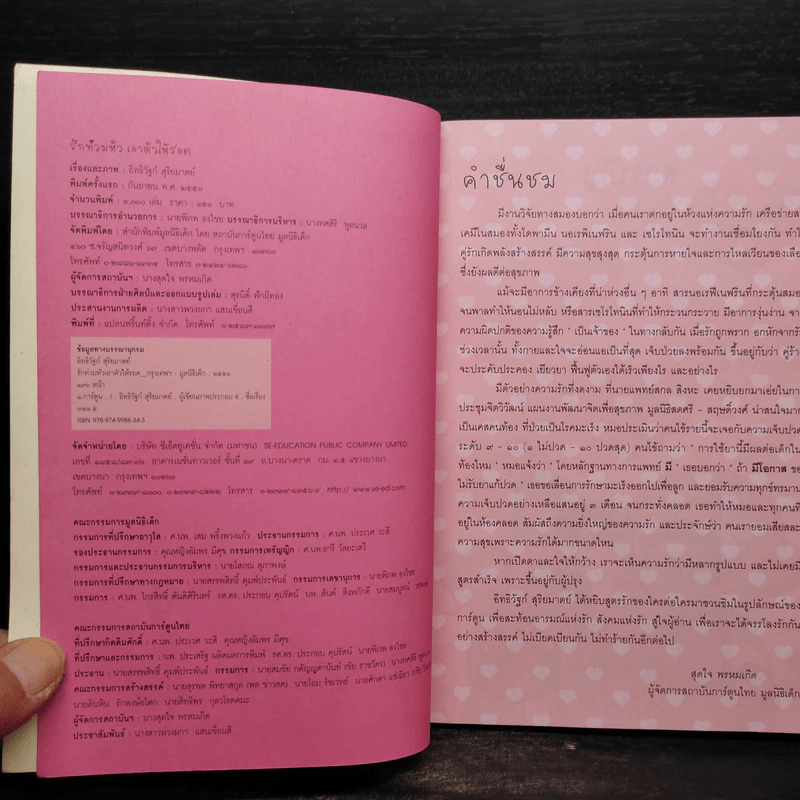 รักท่วมหัว เอาตัวให้รอด
เรื่องและภาพ : อิทธิวัฐก์ สุริยมาตย์
พิมพ์ครั้งแรก : กันยายน พ.ศ. ๒๕๕๐
จำนวนพิมพ์ : ๔,๐๐๐ เล่ม ราคา : ๑๕๐ บาท
บรรณาธิการอำนวยการ : นายพิภพ ธงไชย บรรณาธิการบริหาร : นางทศสิริ พูลนวล
จัดพิมพ์โดย : สำนักพิมพ์มูลนิธิเด็ก โดย สถาบันการ์ตูนไทย มูลนิธิเด็ก
๔๖๐ ซ.จรัญสนิทวงศ์ ๖๙ เขตบางพลัด กรุงเทพฯ ๑๐๗๐๐
โทรศัพท์ ๐-๒๘๘๑-๑๗๓๔ โทรสาร ๐-๒๔๒๔-๖๒๘๐
ผู้จัดการสถาบันฯ : นางสุดใจ พรหมเกิด
บรรณาธิการฝ่ายศิลป์และออกแบบรูปเล่ม : สุรนิติ์ ฟักมีทอง
ประสานงานการผลิต : นางสาวพวงผกา แสนเขื่อนสี
พิมพ์ที่ : แปลนพริ้นท์ติ้ง จำกัด โทรศัพท์
ข้อมูลทางบรรณานุกรม
อิทธิวัฐก์ สุริยมาตย์
รักท่วมหัวเอาตัวให้รอด__กรุงเทพฯ : มูลนิธิเด็ก, ๒๕๕๐
๑๗๖ หน้า
๑.การ์ตูน. I. อิทธิวัฐก์ สุริยมาตย์, ผู้เขียนภาพประกอบ II. ชื่อเรื่อง
๗๔๑.๕
ISBN 978-974-9988-34-3
จัดจำหน่ายโดย : บริษัท ซีเอ็ดยูเคชั่น จำกัด (มหาชน) SE-EDUCATION PUBLIC COMPANY LIMITED
เลขที่ อาคารเนชั่นทาวเวอร์ ชั้นที่ ๑๙ ถ.บางนา-ตราด กม. ๔.๕ แขวงบางนา
เขตบางนา กรุงเทพฯ ๑๐๒๖๐
โทรศัพท์ โทรสาร http://www.se-ed.com
คณะกรรมการมูลนิธิเด็ก
กรรมการที่ปรึกษาอาวุโส : ศ.นพ. เสม พริ้งพวงแก้ว ประธานกรรมการ : ศ.นพ. ประเวศ วะสี
รองประธานกรรมการ : คุณหญิงอัมพร มีศุข กรรมการเหรัญญิก : ศ.นพ.อารี วัลยะเสวี
กรรมการและประธานกรรมการบริหาร : นายโสภณ สุภาพงษ์
กรรมการที่ปรึกษาทางกฎหมาย : นายสรรพสิทธิ์ คุมพ์ประพันธ์ กรรมการเลขานุการ : นายพิภพ ธงไชย
กรรมการ : ศ.นพ. ไกรสิทธิ์ ตันติศิรินทร์ รศ.ดร. ประกอบ คุปรัตน์ นพ. สันต์ สิงหภักดี นายสมบูรณ์
คณะกรรมการสถาบันการ์ตูนไทย
ที่ปรึกษากิตติมศักดิ์ : ศ.นพ. ประเวศ วะสี คุณหญิงอัมพร มีศุข
ที่ปรึกษาและกรรมการ : นพ. ประเสริฐ ผลิตผลการพิมพ์ รศ.ดร. ประกอบ คุปรัตน์ นายพิภพ ธงไชย
ประธาน : นายสรรพสิทธิ์ คุมพ์ประพันธ์ กรรมการ : นายสมชัย กตัญญุตานันท์ (ชัย ราชวัตร) นางทศสิริ พูลนวล
คณะกรรมการสร้างสรรค์ : นายสุรพล พิทยาสกุล (พล ข่าวสด) นายโอม รัชเวทย์ นายศักดา แซ่เอียว
นายดินหิน รักพงษ์อโศก นายสิทธิพร กุลวโรตตมะ
ผู้จัดการสถาบันฯ : นางสุดใจ พรหมเกิด
ประชาสัมพันธ์ : นางสาวพวงผกา แสนเขื่อนสี
คำชื่นชม
มีงานวิจัยทางสมองบอกว่า เมื่อคนเราตกอยู่ในห้วงแห่งความรัก เครือข่ายส
เคมีในสมองทั้งโดพามีน นอเรพิเนฟริน และ เซโรโทนิน จะทำงานเชื่อมโยงกัน ทำใ
คู่รักเกิดพลังสร้างสรรค์ มีความสุขสูงสุด กระตุ้นการหายใจและการไหลเวียนของเลือ
ซึ่งยังผลดีต่อสุขภาพ
แม้จะมีอาการข้างเคียงที่น่าห่วงอื่น ๆ อาทิ สารนอเรฟิเนฟรินที่กระตุ้นสมอ
จนพาลทำให้นอนไม่หลับ หรือสารเซโรโทนินที่ทำให้กระวนกระวาย มีอาการงุ่นง่าน จา
ความผิดปกติของความรู้สึก " เป็นเจ้าของ " ในทางกลับกัน เมื่อรักถูกพราก อกหักจากรั
ช่วงเวลานั้น ทั้งกายและใจจะอ่อนแอเป็นที่สุด เจ็บป่วยลงพร้อมกัน ขึ้นอยู่กับว่า คู่ร้า
จะประคับประคอง เยียวยา ฟื้นฟูตัวเองได้เร็วเพียงไร และอย่างไร
มีตัวอย่างความรักที่งดงาม ที่นายแพทย์สกล สิงหะ เคยหยิบยกมาเอ่ยในกา
ประชุมจิตวิวัฒน์ แผนงานพัฒนาจิตเพื่อสุขภาพ มูลนิธิสดศรี - สฤษดิ์วงศ์ น่าสนใจมาก
เป็นเคสคนท้อง ที่ป่วยเป็นโรคมะเร็ง หมอประเมินว่าคนไข้รายนี้จะเจอกับความเจ็บปวด
ระดับ ๙ - ๑๐ (๑ ไม่ปวด - ๑๐ ปวดสุด) คนไข้ถามว่า " การใช้ยานี้มีผลต่อเด็กใน
ท้องไหม " หมอแจ้งว่า " โดยหลักฐานทางการแพทย์ มี " เธอบอกว่า " ถ้า มีโอกาส ขอ
ไม่รับยาแก้ปวด " เธอขอเลื่อนการรักษามะเร็งออกไปเพื่อลูก และยอมรับความทุกข์ทรมาน
ความเจ็บปวดอย่างเหลือแสนอยู่ ๓ เดือน จนกระทั่งคลอด เธอทำให้หมอและทุกคนที่
อยู่ในห้องคลอด สัมผัสถึงความยิ่งใหญ่ของความรัก และประจักษ์ว่า คนเรายอมเสียสละ
ความสุขเพราะความรักได้มากขนาดไหน
หากเปิดตาและใจให้กว้าง เราจะเห็นความรักว่ามีหลากรูปแบบ และไม่เคยมี
สูตรสำเร็จ เพราะขึ้นอยู่กับผู้ปรุง
อิทธิวัฐก์ สุริยมาตย์ ได้หยิบสูตรรักของใครต่อใครมาชวนชิมในรูปลักษณ์ของ
การ์ตูน เพื่อสะท้อนอารมณ์แห่งรัก สังคมแห่งรัก สู่ผู้อ่าน เพื่อเราจะได้จรรโลงรักกัน
อย่างสร้างสรรค์ ไม่เบียดเบียนกัน ไม่ทำร้ายกันอีกต่อไป
สุดใจ พรหมเกิด
ผู้จัดการสถาบันการ์ตูนไทย มูลนิธิเด็ก